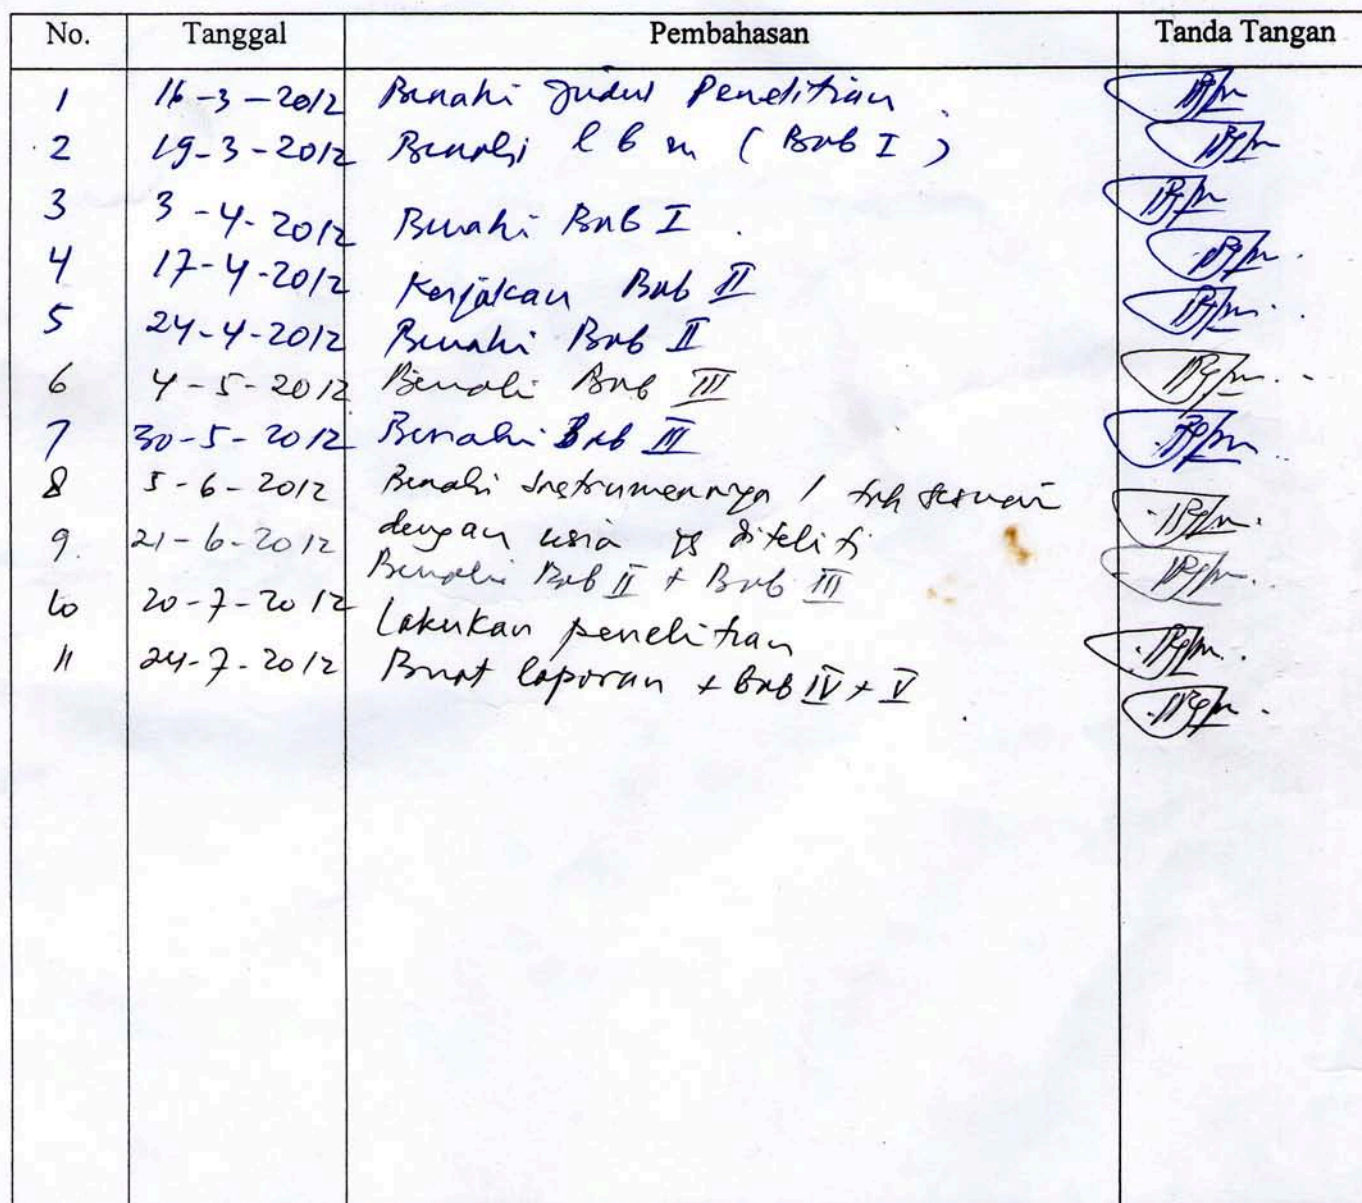 No. Tanggal Pembahasan Tanda Tangan
1 16-3-2012 Benahi Judul Penelitian
2 19-3-2012 Benahi l b m (Bab I)
3 3-4-2012 Benahi Bab I.
4 17-4-2012 Kerjakan Bab II
5 24-4-2012 Benahi Bab II
6 4-5-2012 Benahi Bab III
7 30-5-2012 Benahi Bab III
8 5-6-2012 Benahi Instrumennya / sesuai
9. 21-6-2012 dengan usia yg diteliti
Benahi Bab II + Bab III
10 20-7-2012 Lakukan penelitian
11 24-7-2012 Buat laporan + bab IV + V